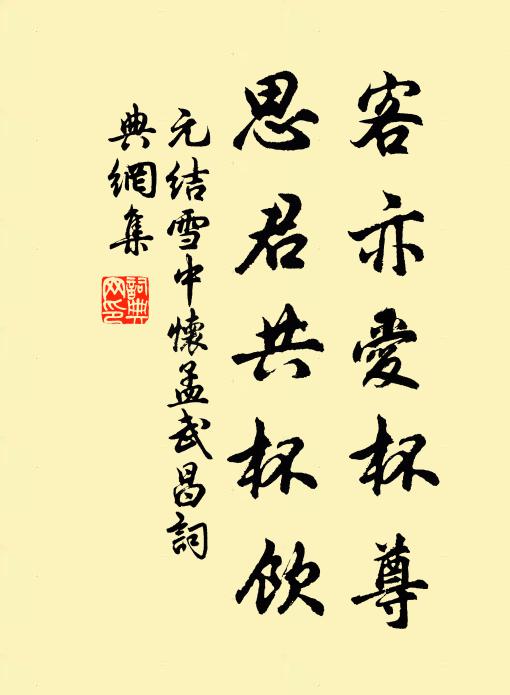 客亦愛杯尊
思君共杯飲
元結雪中懷孟武昌詞
典網集
詞典
网印